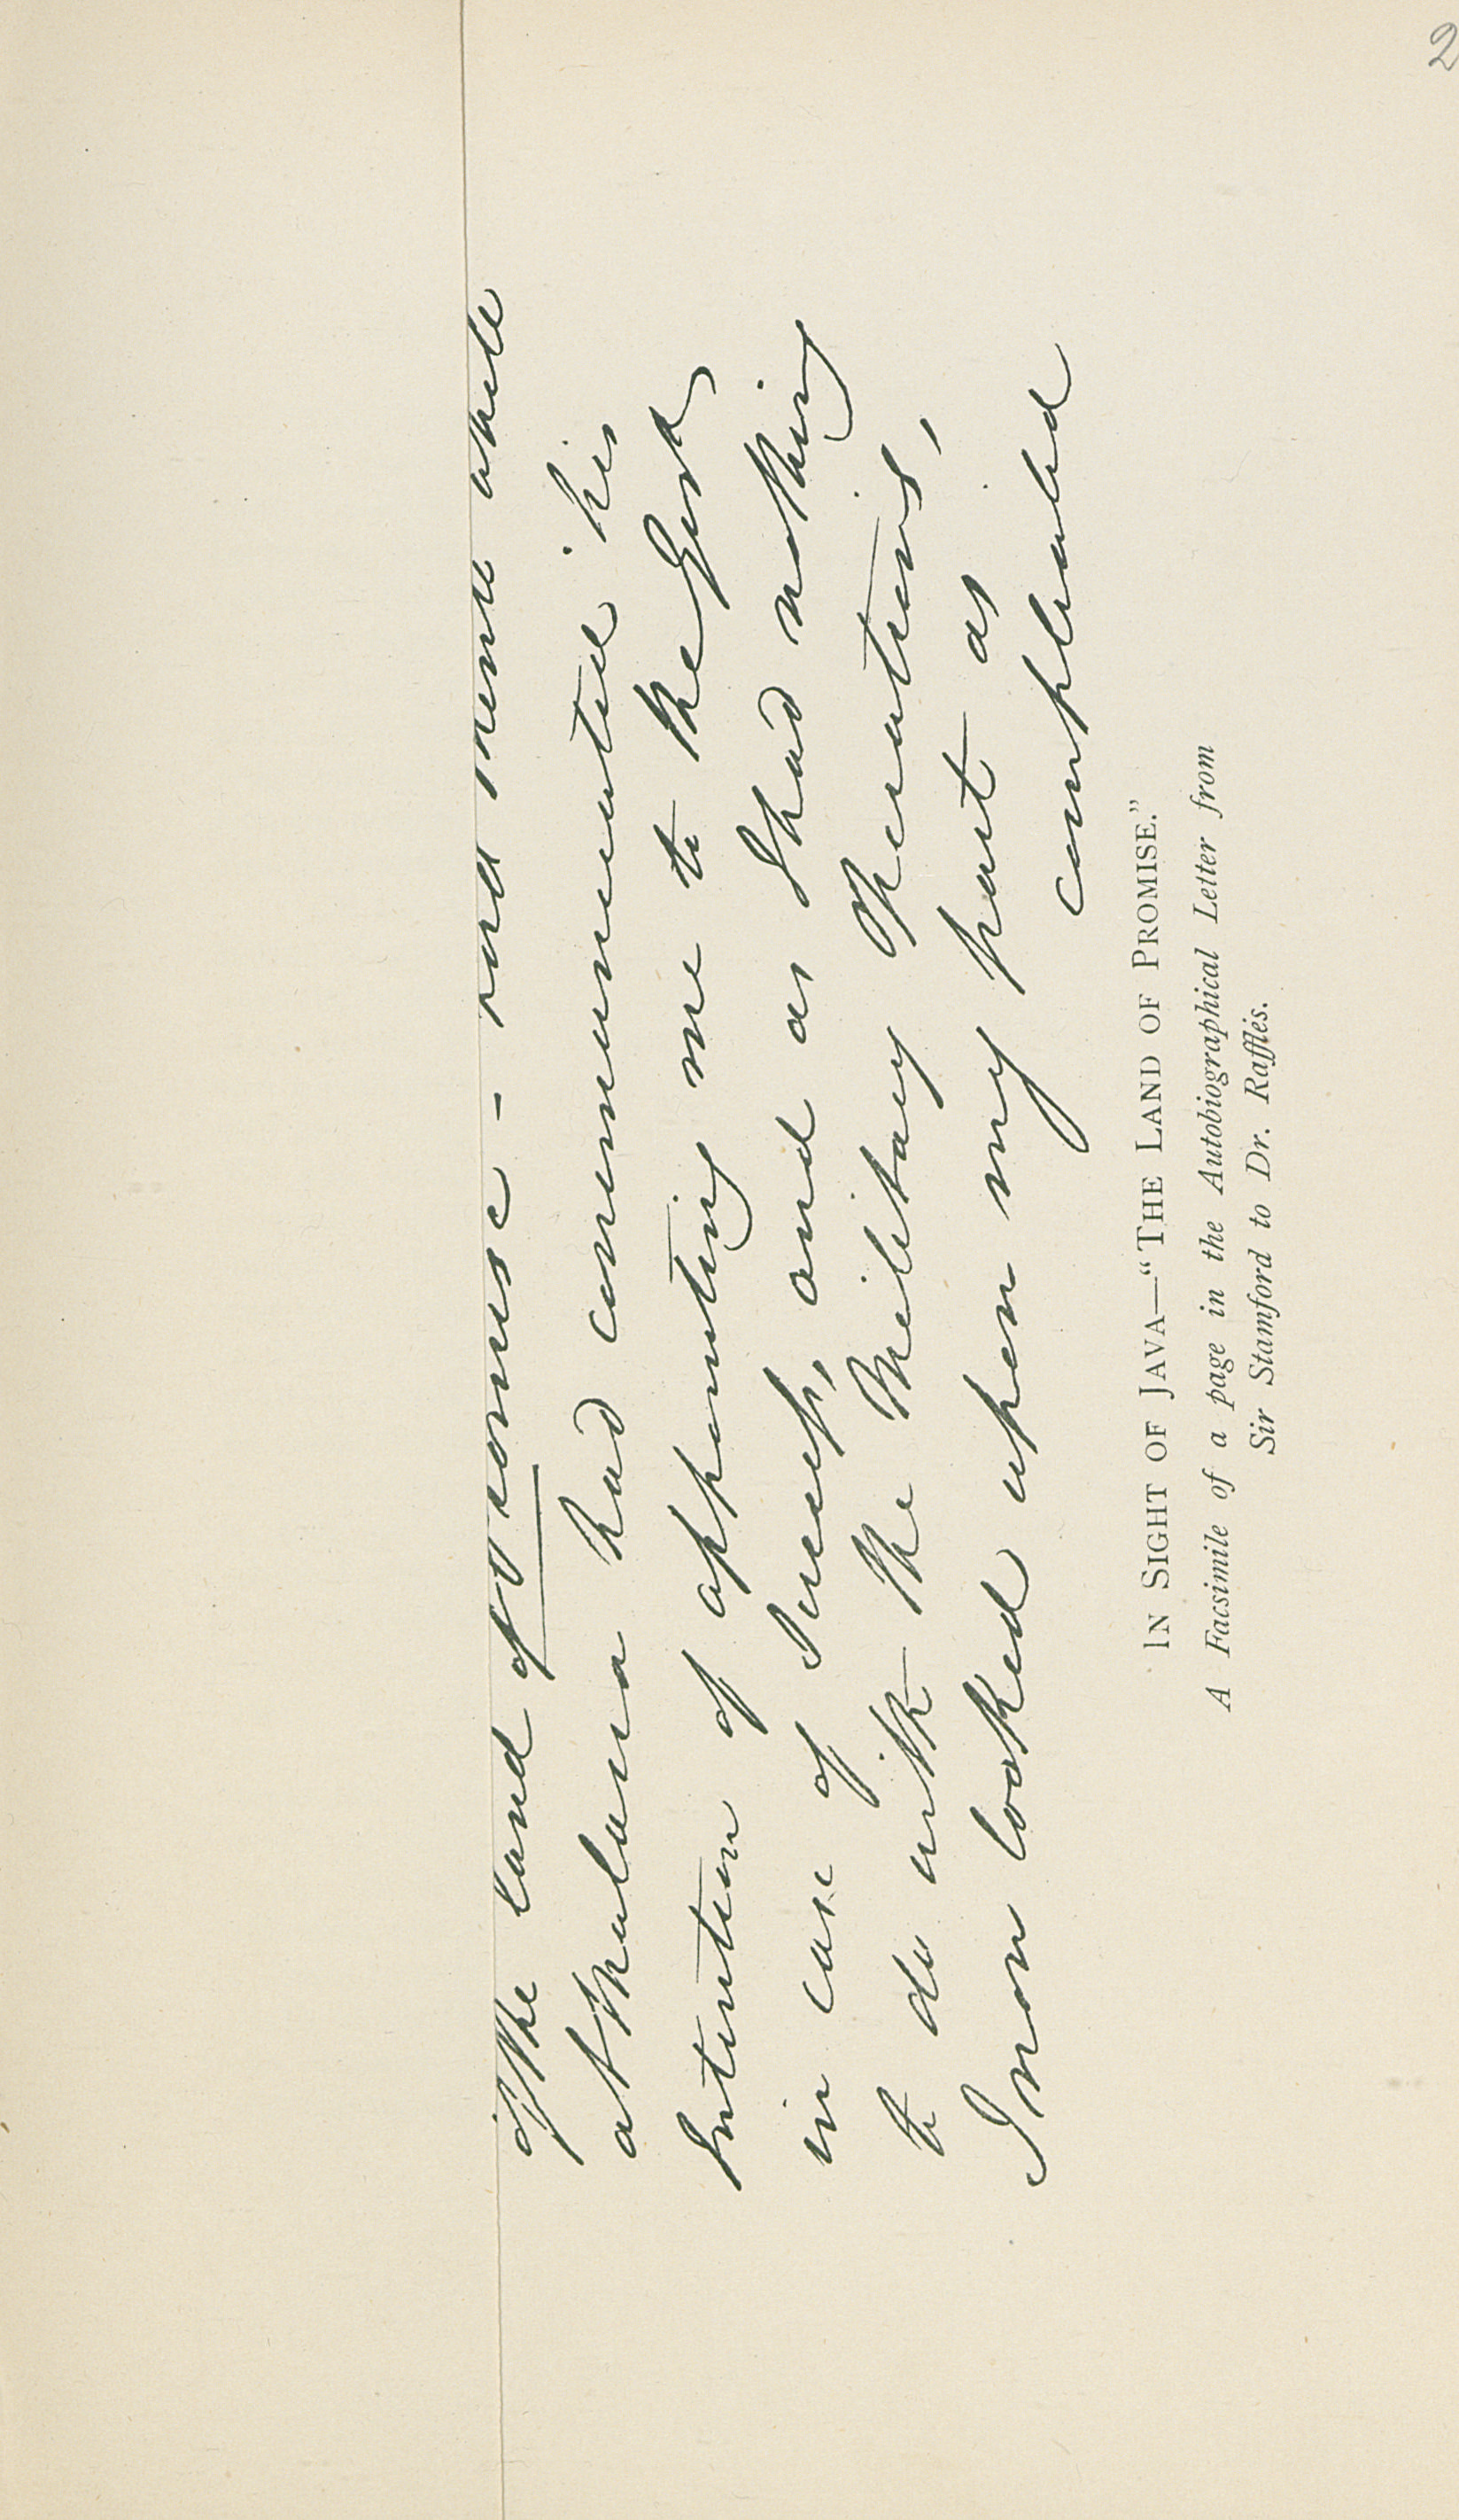 of the land of Promise - and mem while
at Malacca had communicated his
Intention of appointing me to the Govt
in case of Success, and as I had nothing
to do with the Military Operations,
I now looked upon my part as
compleated
IN SIGHT OF JAVA—“THE LAND OF PROMISE.”
A Facsimile of a page in the Autobiographical Letter from
Sir Stamford to Dr. Raffles.
2